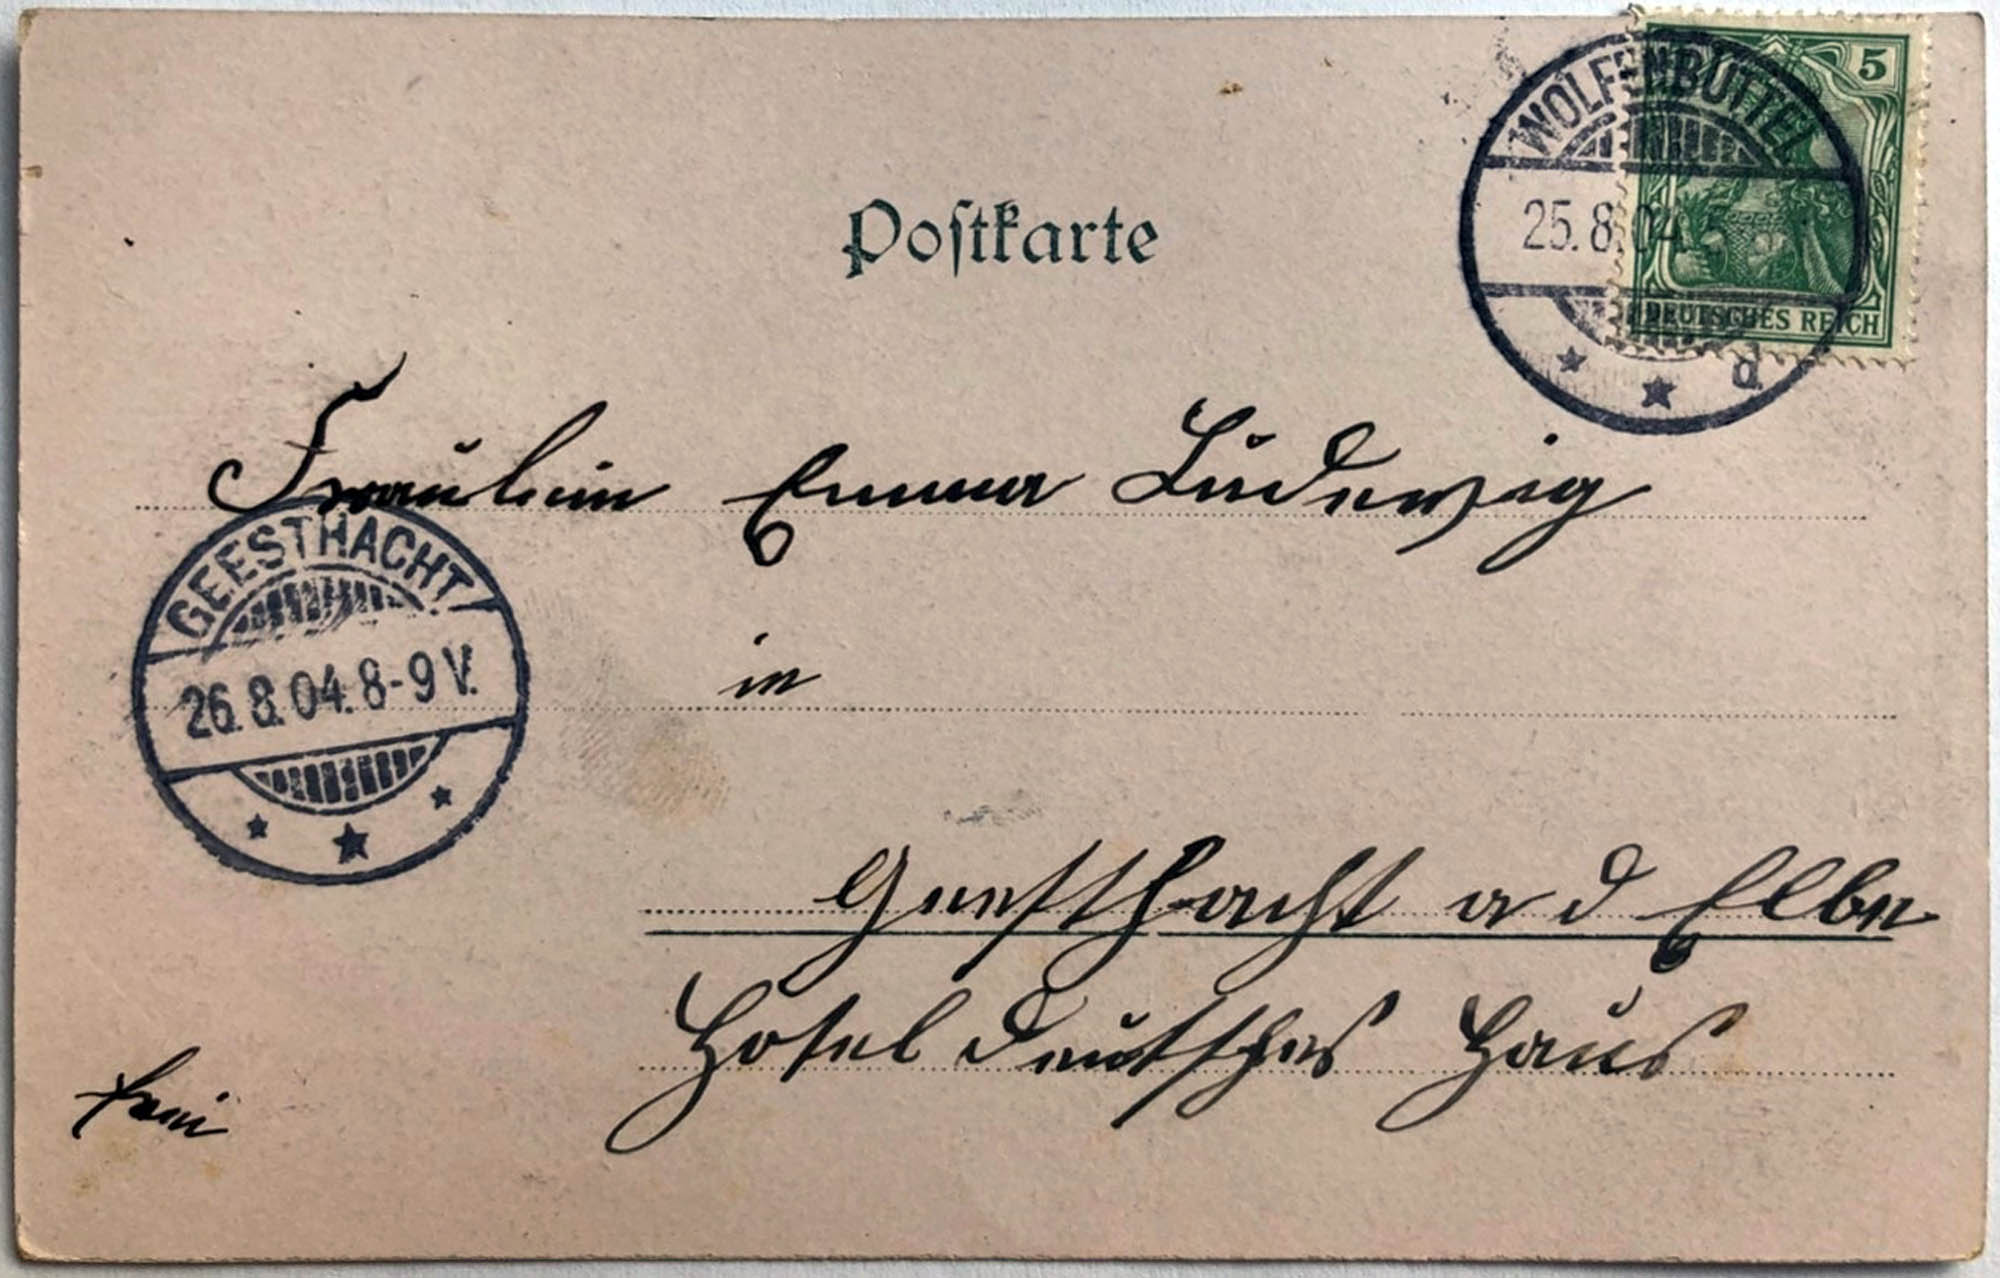 WOLFENBÜTTEL
25.8.04.5
5
DEUTSCHES REICH
Postkarte
Fräulein Emma Ludewig
GEESTHACHT
26.8.04.8-9V.
in
Geesthacht a d Elbe
Hotel Deutsches Haus
frei